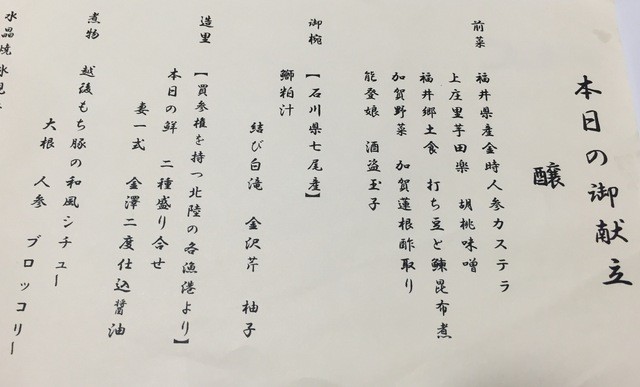 本日の御献立
醸
前菜
福井県産金時人参カステラ
上庄里芋田楽 胡桃味噌
福井郷土食 打ち豆と鰊昆布煮
加賀野菜 加賀蓮根酢取り
能登娘 酒盗玉子
御椀
【石川県七尾産】
鰤粕汁
結び白滝 金沢芹 柚子
造里
【買参権を持つ北陸の各漁港より】
本日の鮮 二種盛り合せ
妻一式 金澤二度仕込醤油
煮物
越後もち豚の和風シチュー
大根 人参 ブロッコリー
水晶焼